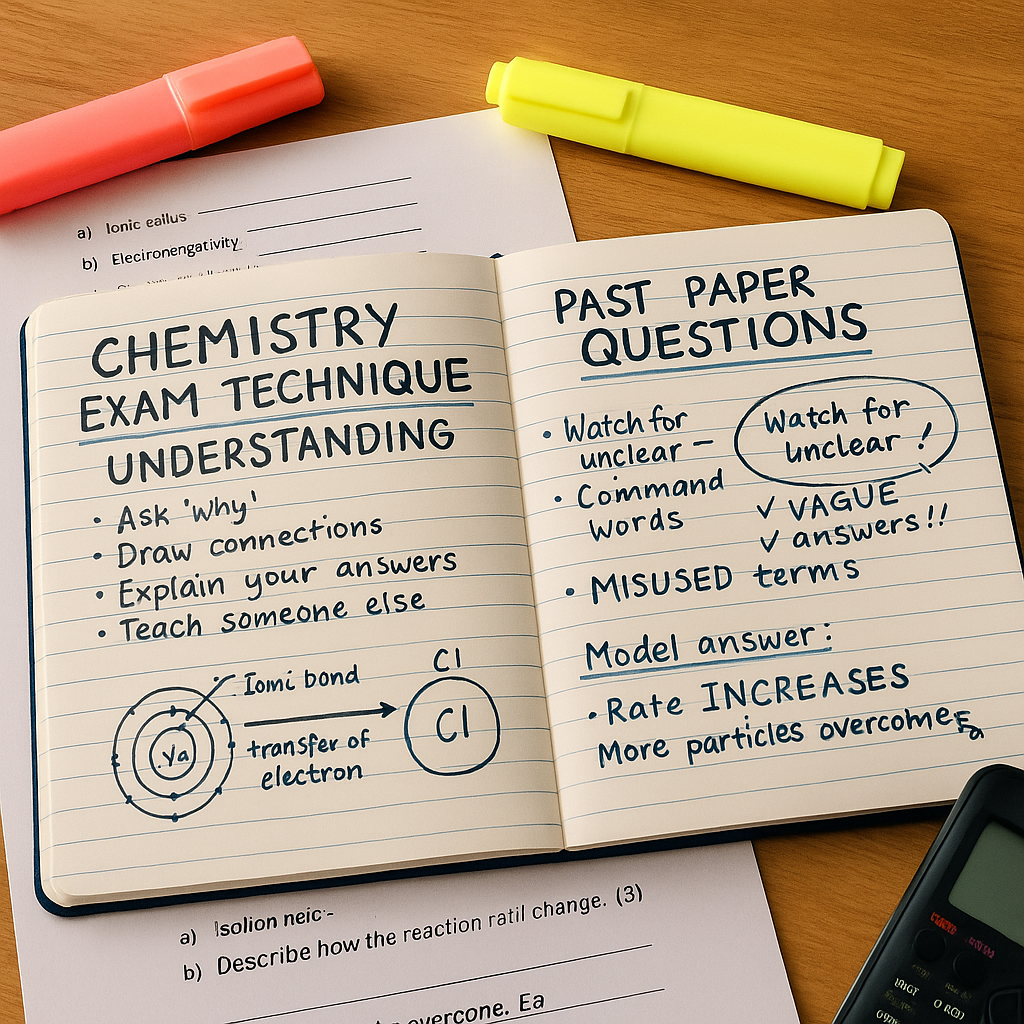 a) Ionic eallus
b) Elecironengativity
CHEMISTRY
EXAM TECHNIQUE
UNDERSTANDING
• Ask 'why'
• Draw connections
• Explain your answers
• Teach someone else
Iomi bond
transfer of
electron
Ya
Cl
Cl
PAST PAPER
QUESTIONS
• Watch for
unclear –
• Command
words
Watch for
unclear !
✓ VAGUE
✓ answers!!
• MISUSED terms
Model answer:
• Rate INCREASES
More particles overcome Ea
a) Isolion neic-
b) Describe how the reaction ratil change. (3)
overcone. Ea